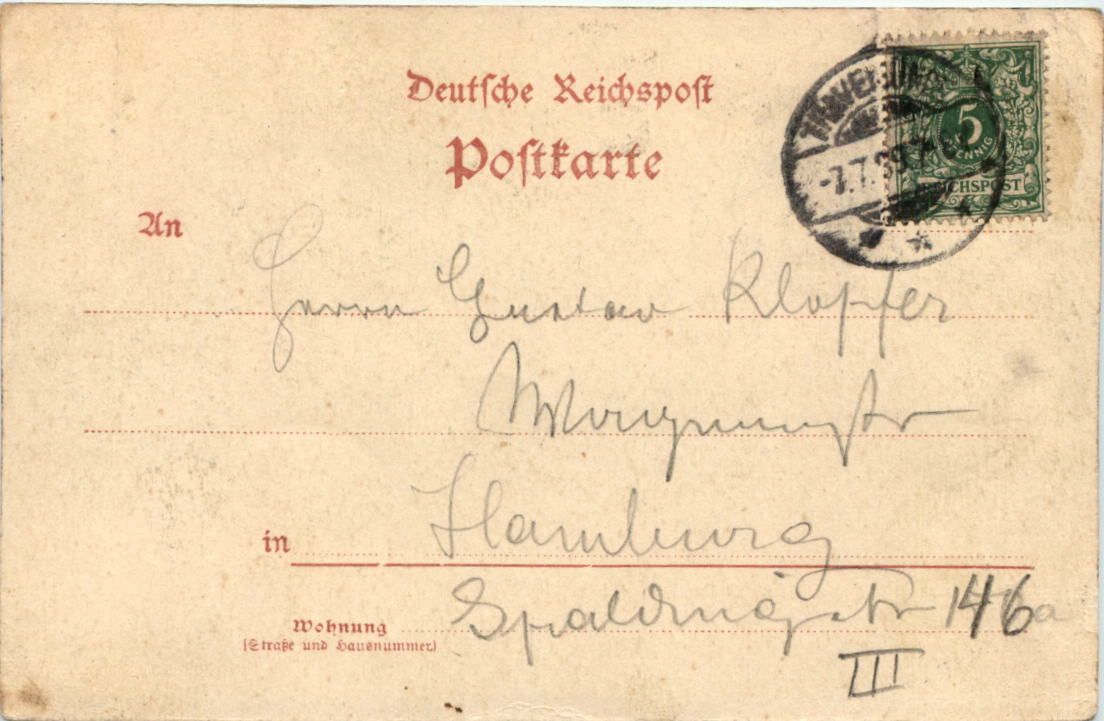 Deutsche Reichspost
Postkarte
5
PFENNIG
REICHSPOST
-7.7.99
An
Herrn Gustav Klopfer
in
Hamburg
Spaldingstr 146a
Wohnung
(Straße und Hausnummer)
III